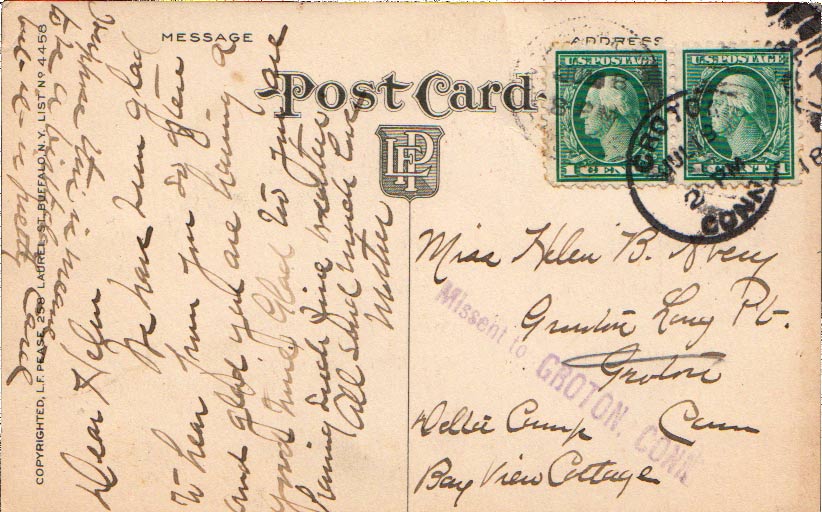 MESSAGE
ADDRESS
Post Card
LFP
COPYRIGHTED, L.F. PEASE, 258 LAUREL ST. BUFFALO, N.Y. LIST Nº 4458
Dear Helen
We have been glad
to hear from you so often
and glad you are having a
good time. Glad too you are
having such fine weather
All send much love
Mother
this is meant
to be a birthday
but it is a pretty card
U.S. POSTAGE
1 CENT
U.S. POSTAGE
1 CENT
GROTON
JUL 19
2 PM
CONN.
18
Miss Helen B. Avery
Groton Long Pt.
Groton
Conn
Delta Camp
Bay View Cottage
Missent to
GROTON, CONN